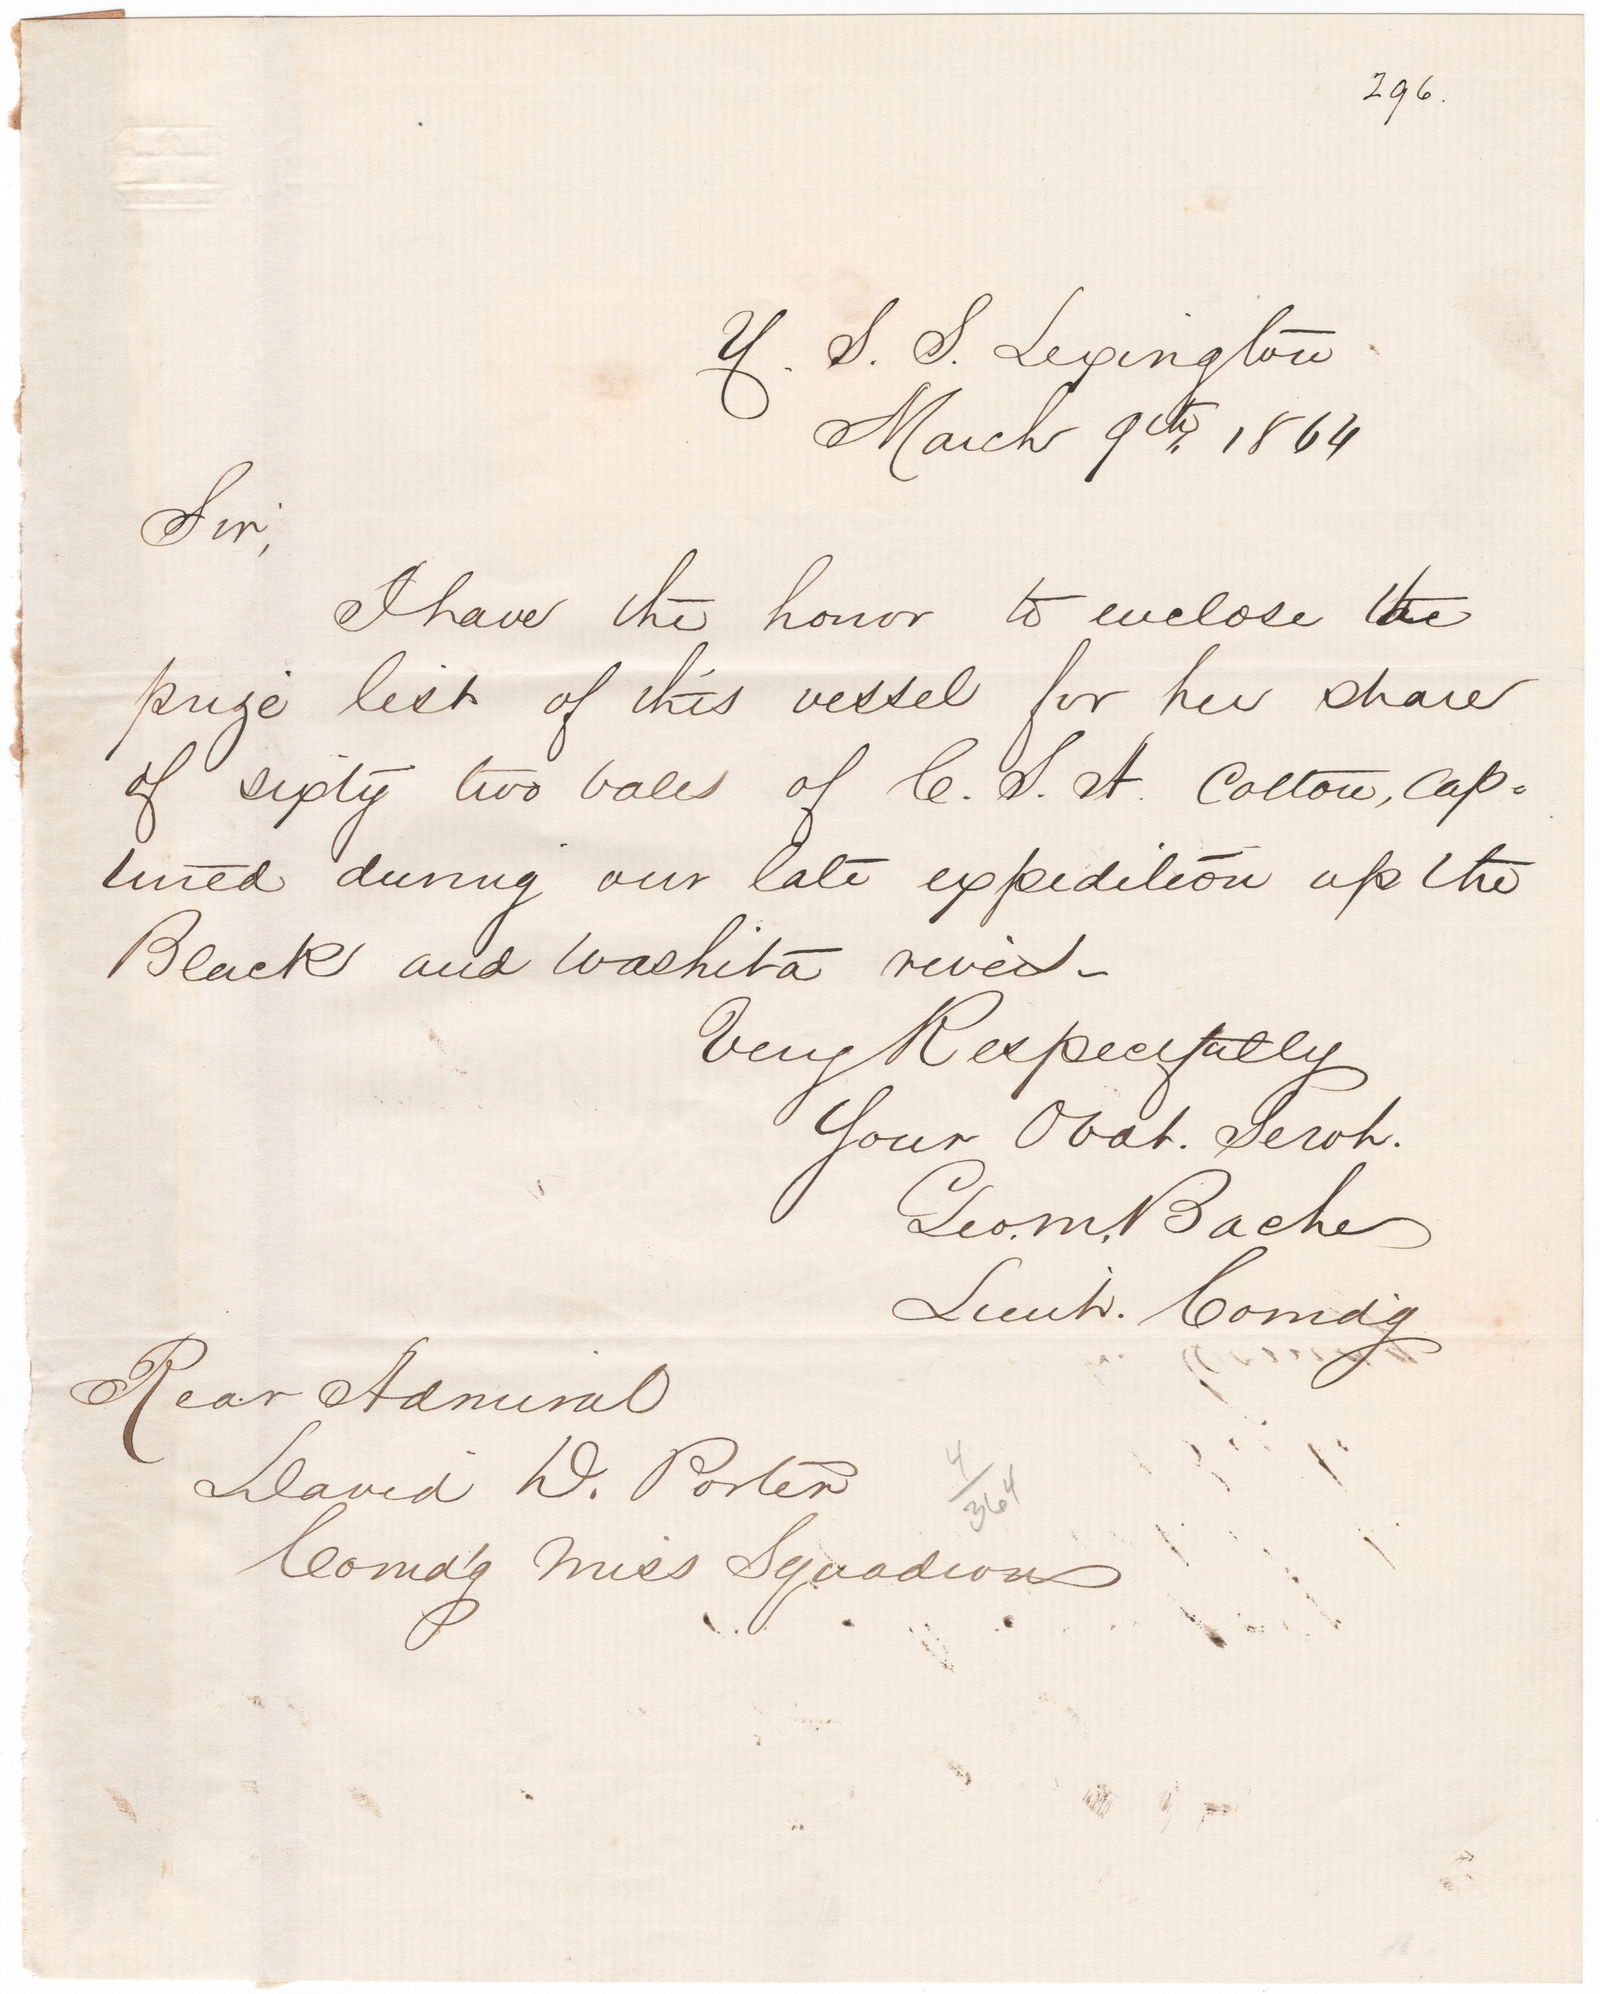 296.
U. S. S. Lexington
March 9th, 1864
Sir;
I have the honor to enclose the
prize list of this vessel for her share
of sixty two bales of C. S. A. Cotton, cap=
tured during our late expedition up the
Black and Washita rivers—
Very Respectfully
Your Obdt. Servt.
Geo. M. Bache
Lieut. Comd'g
Rear Admiral
David D. Porter
Comd'g Miss Squadron
4/364